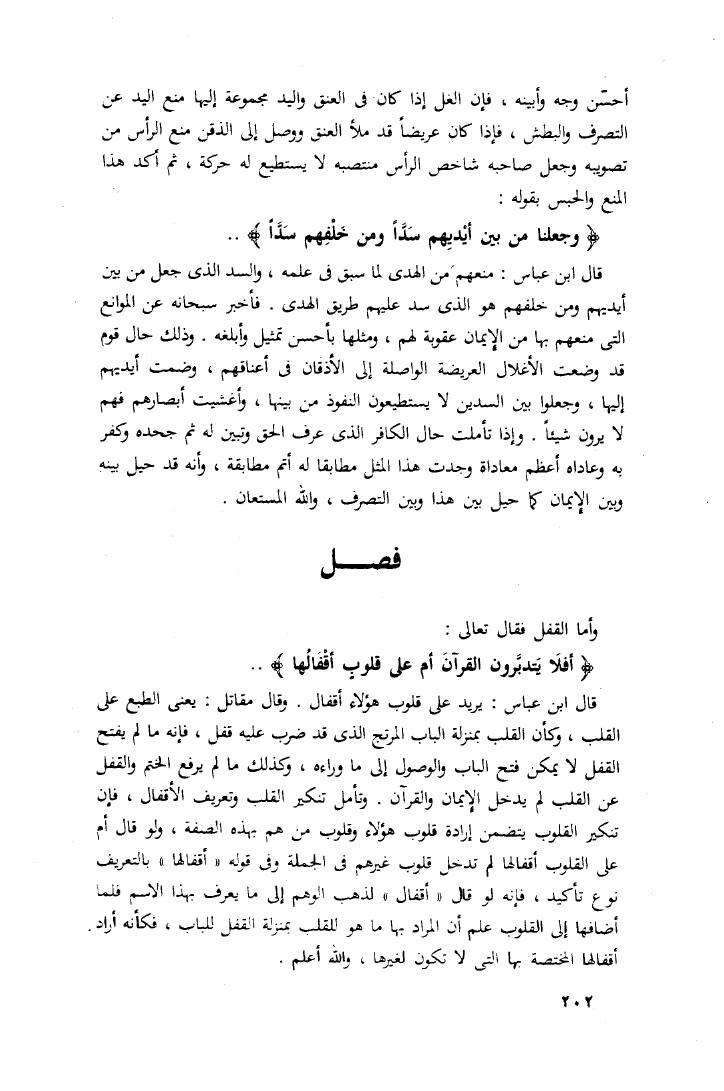 أحسن وجه وأبينه ، فإن الغل إذا كان فى العنق واليد مجموعة إليها منع اليد عن
التصرف والبطش ، فإذا كان عريضاً قد ملأ العنق ووصل إلى الذقن منع الرأس من
تصويبه وجعل صاحبه شاخص الرأس منتصبه لا يستطيع له حركة ، ثم أكد هذا
المنع والحبس بقوله :
﴿ وجعلنا من بين أيْديِهم سَدًّاً ومن خَلْفِهم سَدًّاً ﴾ ..
قال ابن عباس : منعهم من الهدى لما سبق فى علمه ، والسد الذى جعل من بين
أيديهم ومن خلفهم هو الذى سد عليهم طريق الهدى . فأخبر سبحانه عن الموانع
التى منعهم بها من الإيمان عقوبة لهم ، ومثلها بأحسن تمثيل وأبلغه . وذلك حال قوم
قد وضعت الأغلال العريضة الواصلة إلى الأذقان فى أعناقهم ، وضمت أيديهم
إليها ، وجعلوا بين السدين لا يستطيعون النفوذ من بينها ، وأغشيت أبصارهم فهم
لا يرون شيئاً . وإذا تأملت حال الكافر الذى عرف الحق وتبين له ثم جحده وكفر
به وعاداه أعظم معاداة وجدت هذا المثل مطابقا له أتم مطابقة ، وأنه قد حيل بينه
وبين الإيمان كما حيل بين هذا وبين التصرف ، والله المستعان .
فصـــل
وأما القفل فقال تعالى :
﴿ أفلَا يَتدبَّرون القرآنَ أم على قلوبٍ أقْفَالُها ﴾ ..
قال ابن عباس : يريد على قلوب هؤلاء أقفال . وقال مقاتل : يعنى الطبع على
القلب ، وكأن القلب بمنزلة الباب المرتج الذى قد ضرب عليه قفل ، فإنه ما لم يفتح
القفل لا يمكن فتح الباب والوصول إلى ما وراءه ، وكذلك ما لم يرفع الختم والقفل
عن القلب لم يدخل الإيمان والقرآن . وتأمل تنكير القلب وتعريف الأقفال ، فإن
تنكير القلوب يتضمن إرادة قلوب هؤلاء وقلوب من هم بهذه الصفة ، ولو قال أم
على القلوب أقفالها لم تدخل قلوب غيرهم فى الجملة وفى قوله « أقفالها » بالتعريف
نوع تأكيد ، فإنه لو قال « أقفال » لذهب الوهم إلى ما يعرف بهذا الاسم فلما
أضافها إلى القلوب علم أن المراد بها ما هو للقلب بمنزلة القفل للباب ، فكأنه أراد .
أقفالها المختصة بها التى لا تكون لغيرها ، والله أعلم .
٢٠٢